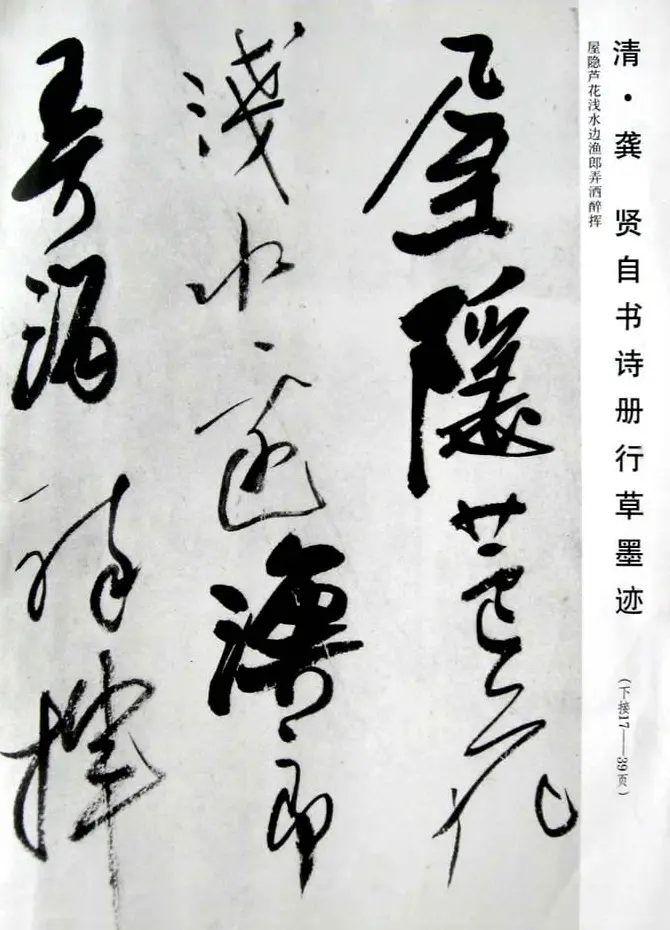 清·龚 贤自书诗册行草墨迹
(下接17——39页)
屋隐芦花浅水边渔郎弄酒醉挥
屋隱蘆花
淺水邊漁郎
弄酒醉揮